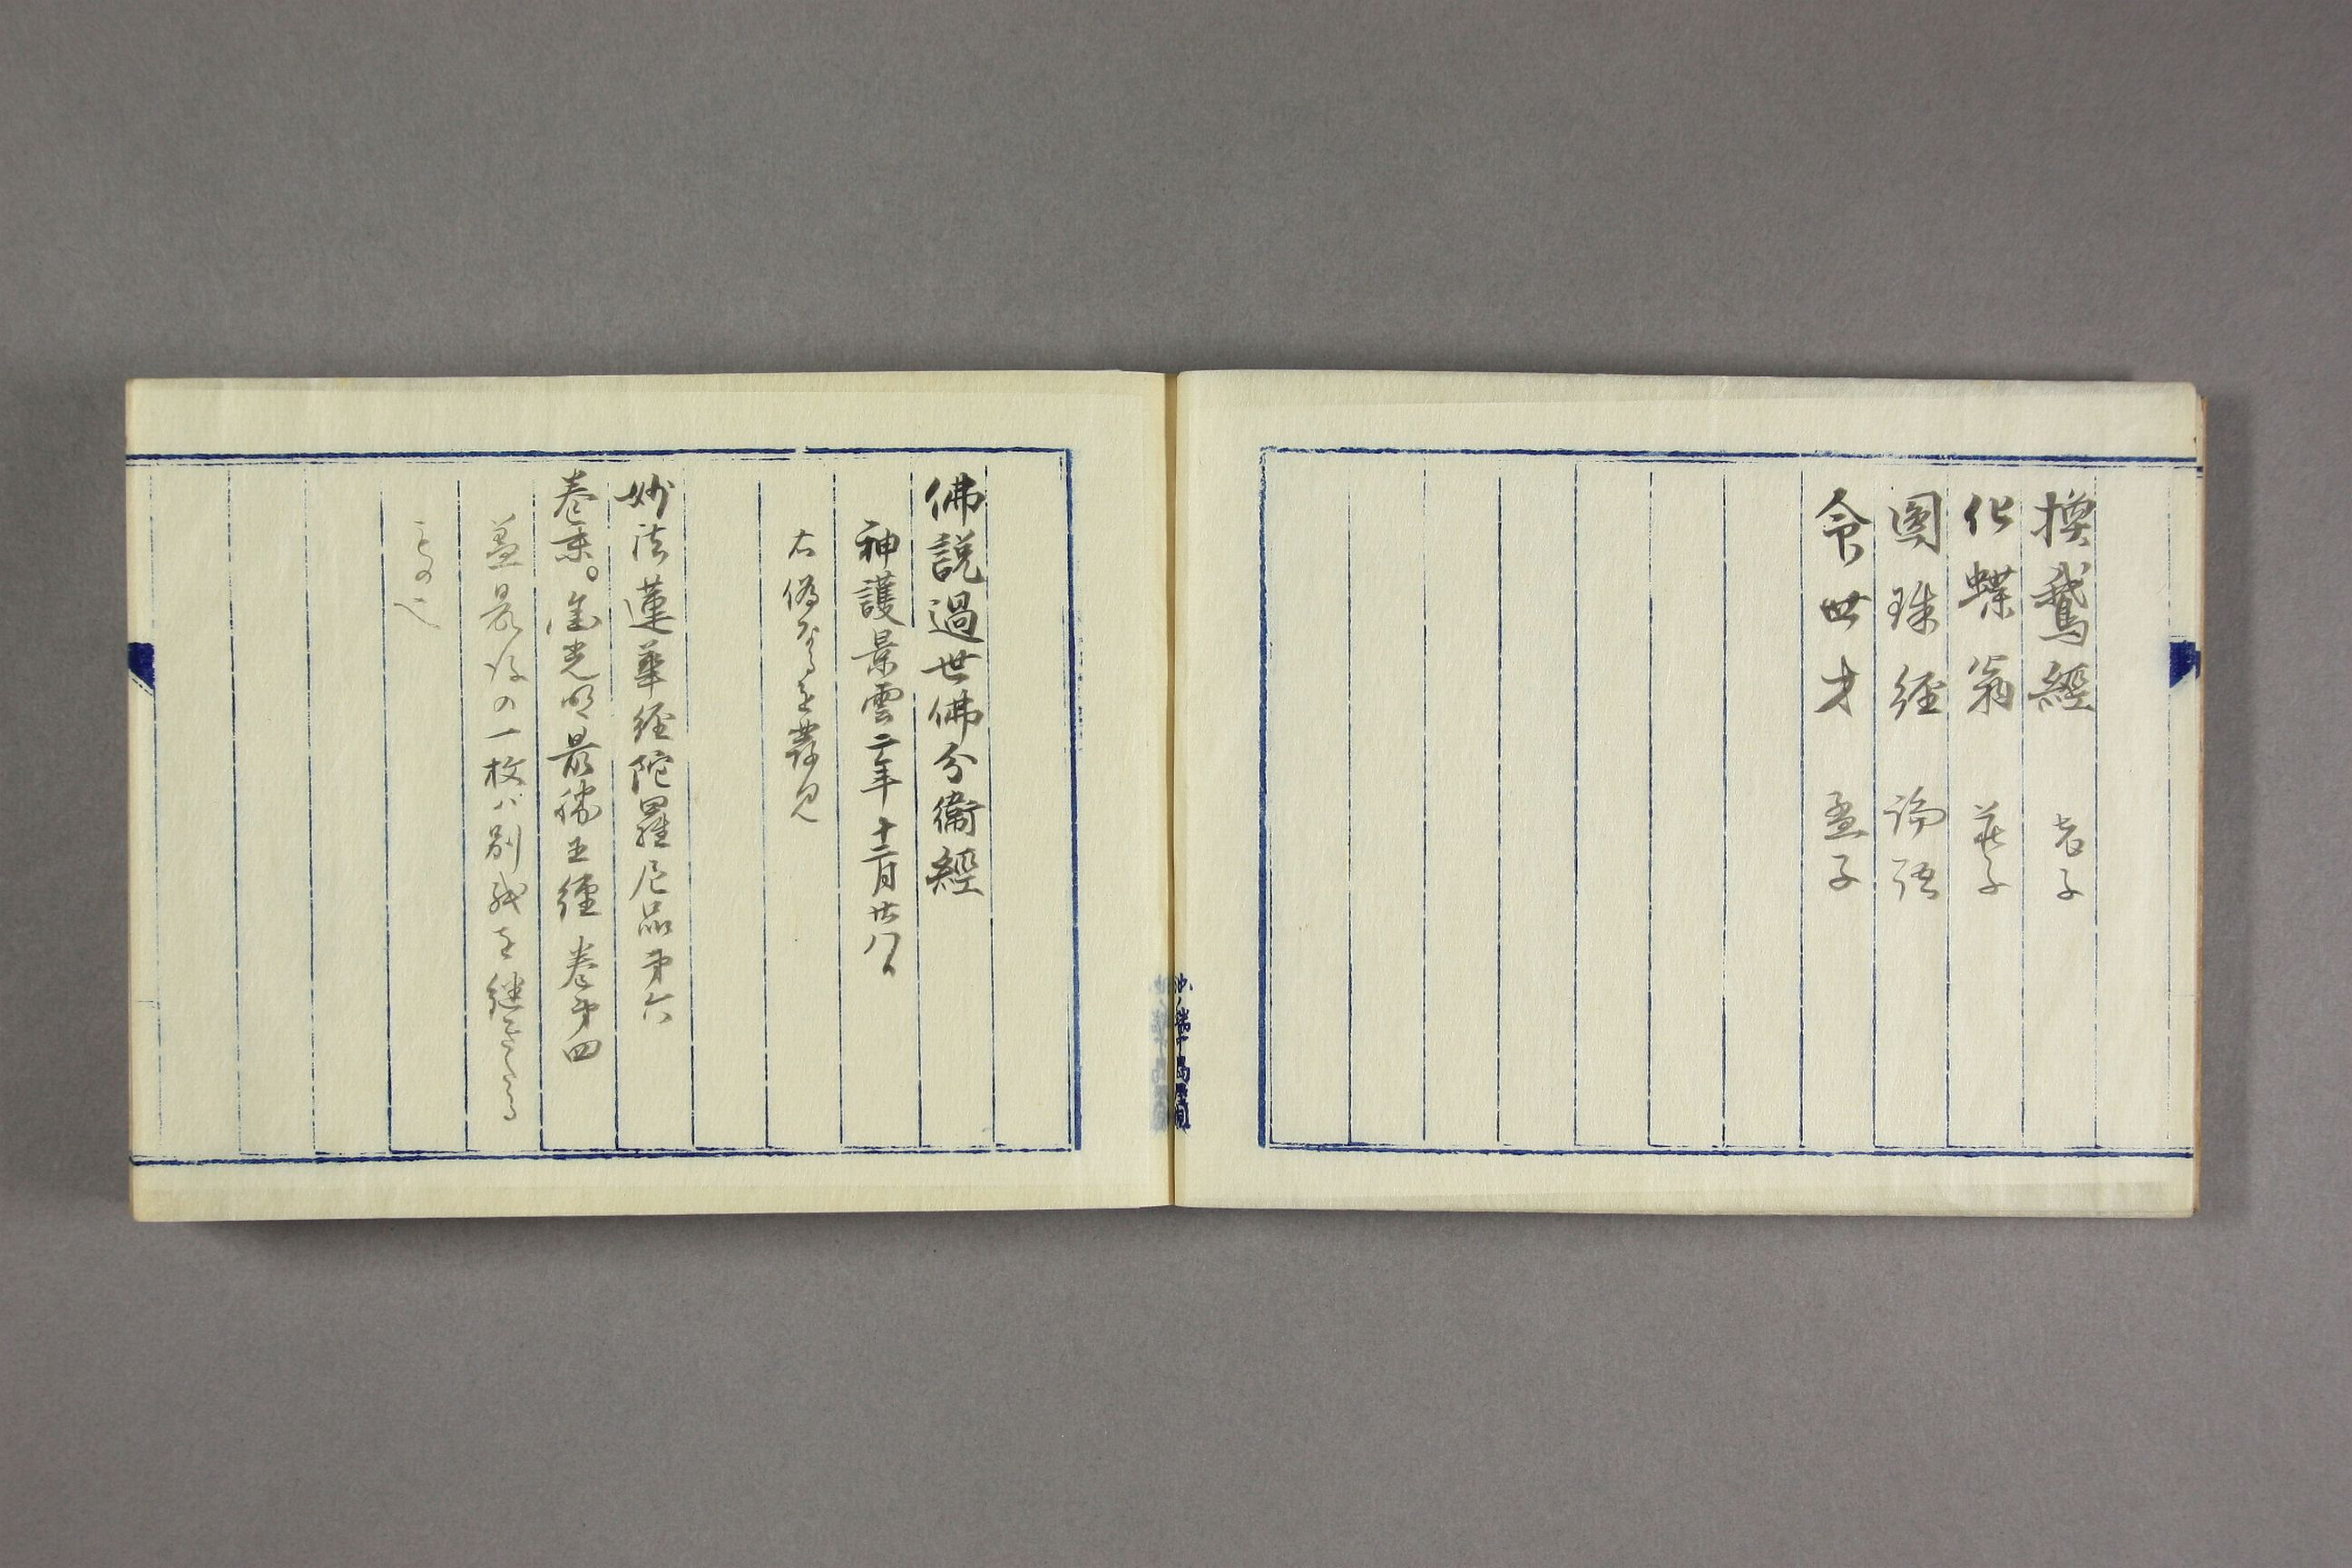 換鵞經 老子
化蝶翁 荘子
圓珠経 論語
命世才 孟子
佛說過世佛分衞經
神護景雲二年十二月廿八日
右偽なるを發見
妙法蓮華経陀羅尼品第六
巻末。金光明最勝王經巻第四
蓋最後の一枚ハ別紙を継ぎたる
もの也